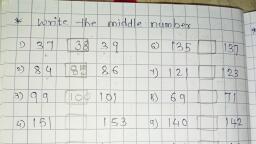 * Write the middle number
1) 37 38 39 6) 135 137
2) 84 85 86 7) 121 123
3) 99 100 101 8) 69 71
4) 151 153 9) 140 142